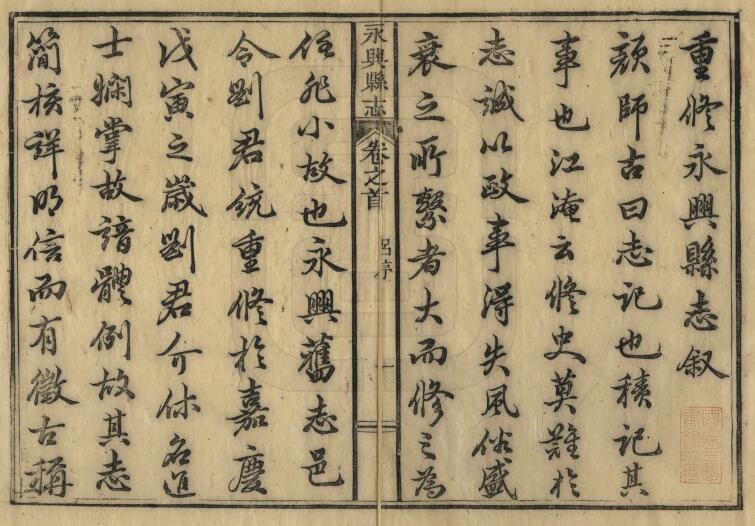 重修永興縣志叙
顔師古曰志記也積記其
事也江淹云修史莫難於
志誠以政事得失風俗盛
衰之所繫者大而修之為
永興縣志 卷之首 呂序 一
任非小故也永興舊志邑
令劉君統重修於嘉慶
戊寅之嵗劉君介休名進
士嫻掌故諳體例故其志
簡核詳明信而有徵古稱